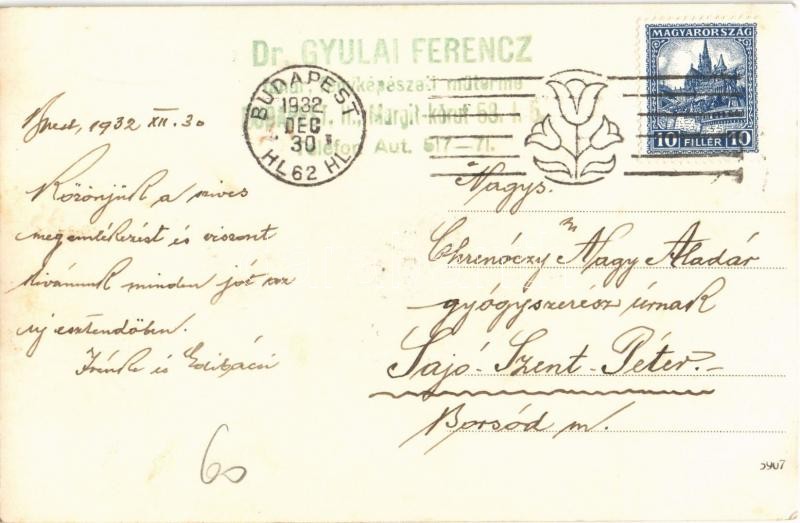 Dr. GYULAI FERENCZ
műterme
II., Margit-körut
Telefon Aut. 517-71.
BUDAPEST
1932
DEC
30
HL 62 HL
MAGYARORSZÁG
10 FILLÉR 10
1932 XII. 30
Köszönjük a szives
megemlékezést és viszont
kivánunk minden jót az
uj esztendőben.
Irénke és
Nagys.
Chrenóczy Nagy Aladár
gyógyszerész úrnak
Sajó-Szent-Péter.-
Borsód m.
60
5907